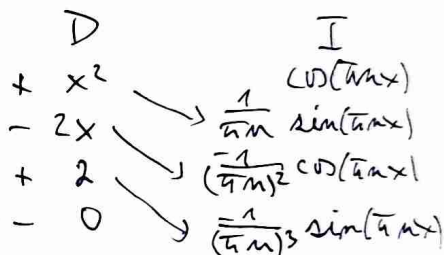 D I
+ x² cos(πnx)
- 2x 1/(πn) sin(πnx)
+ 2 -1/(πn)² cos(πnx)
- 0 -1/(πn)³ sin(πnx)